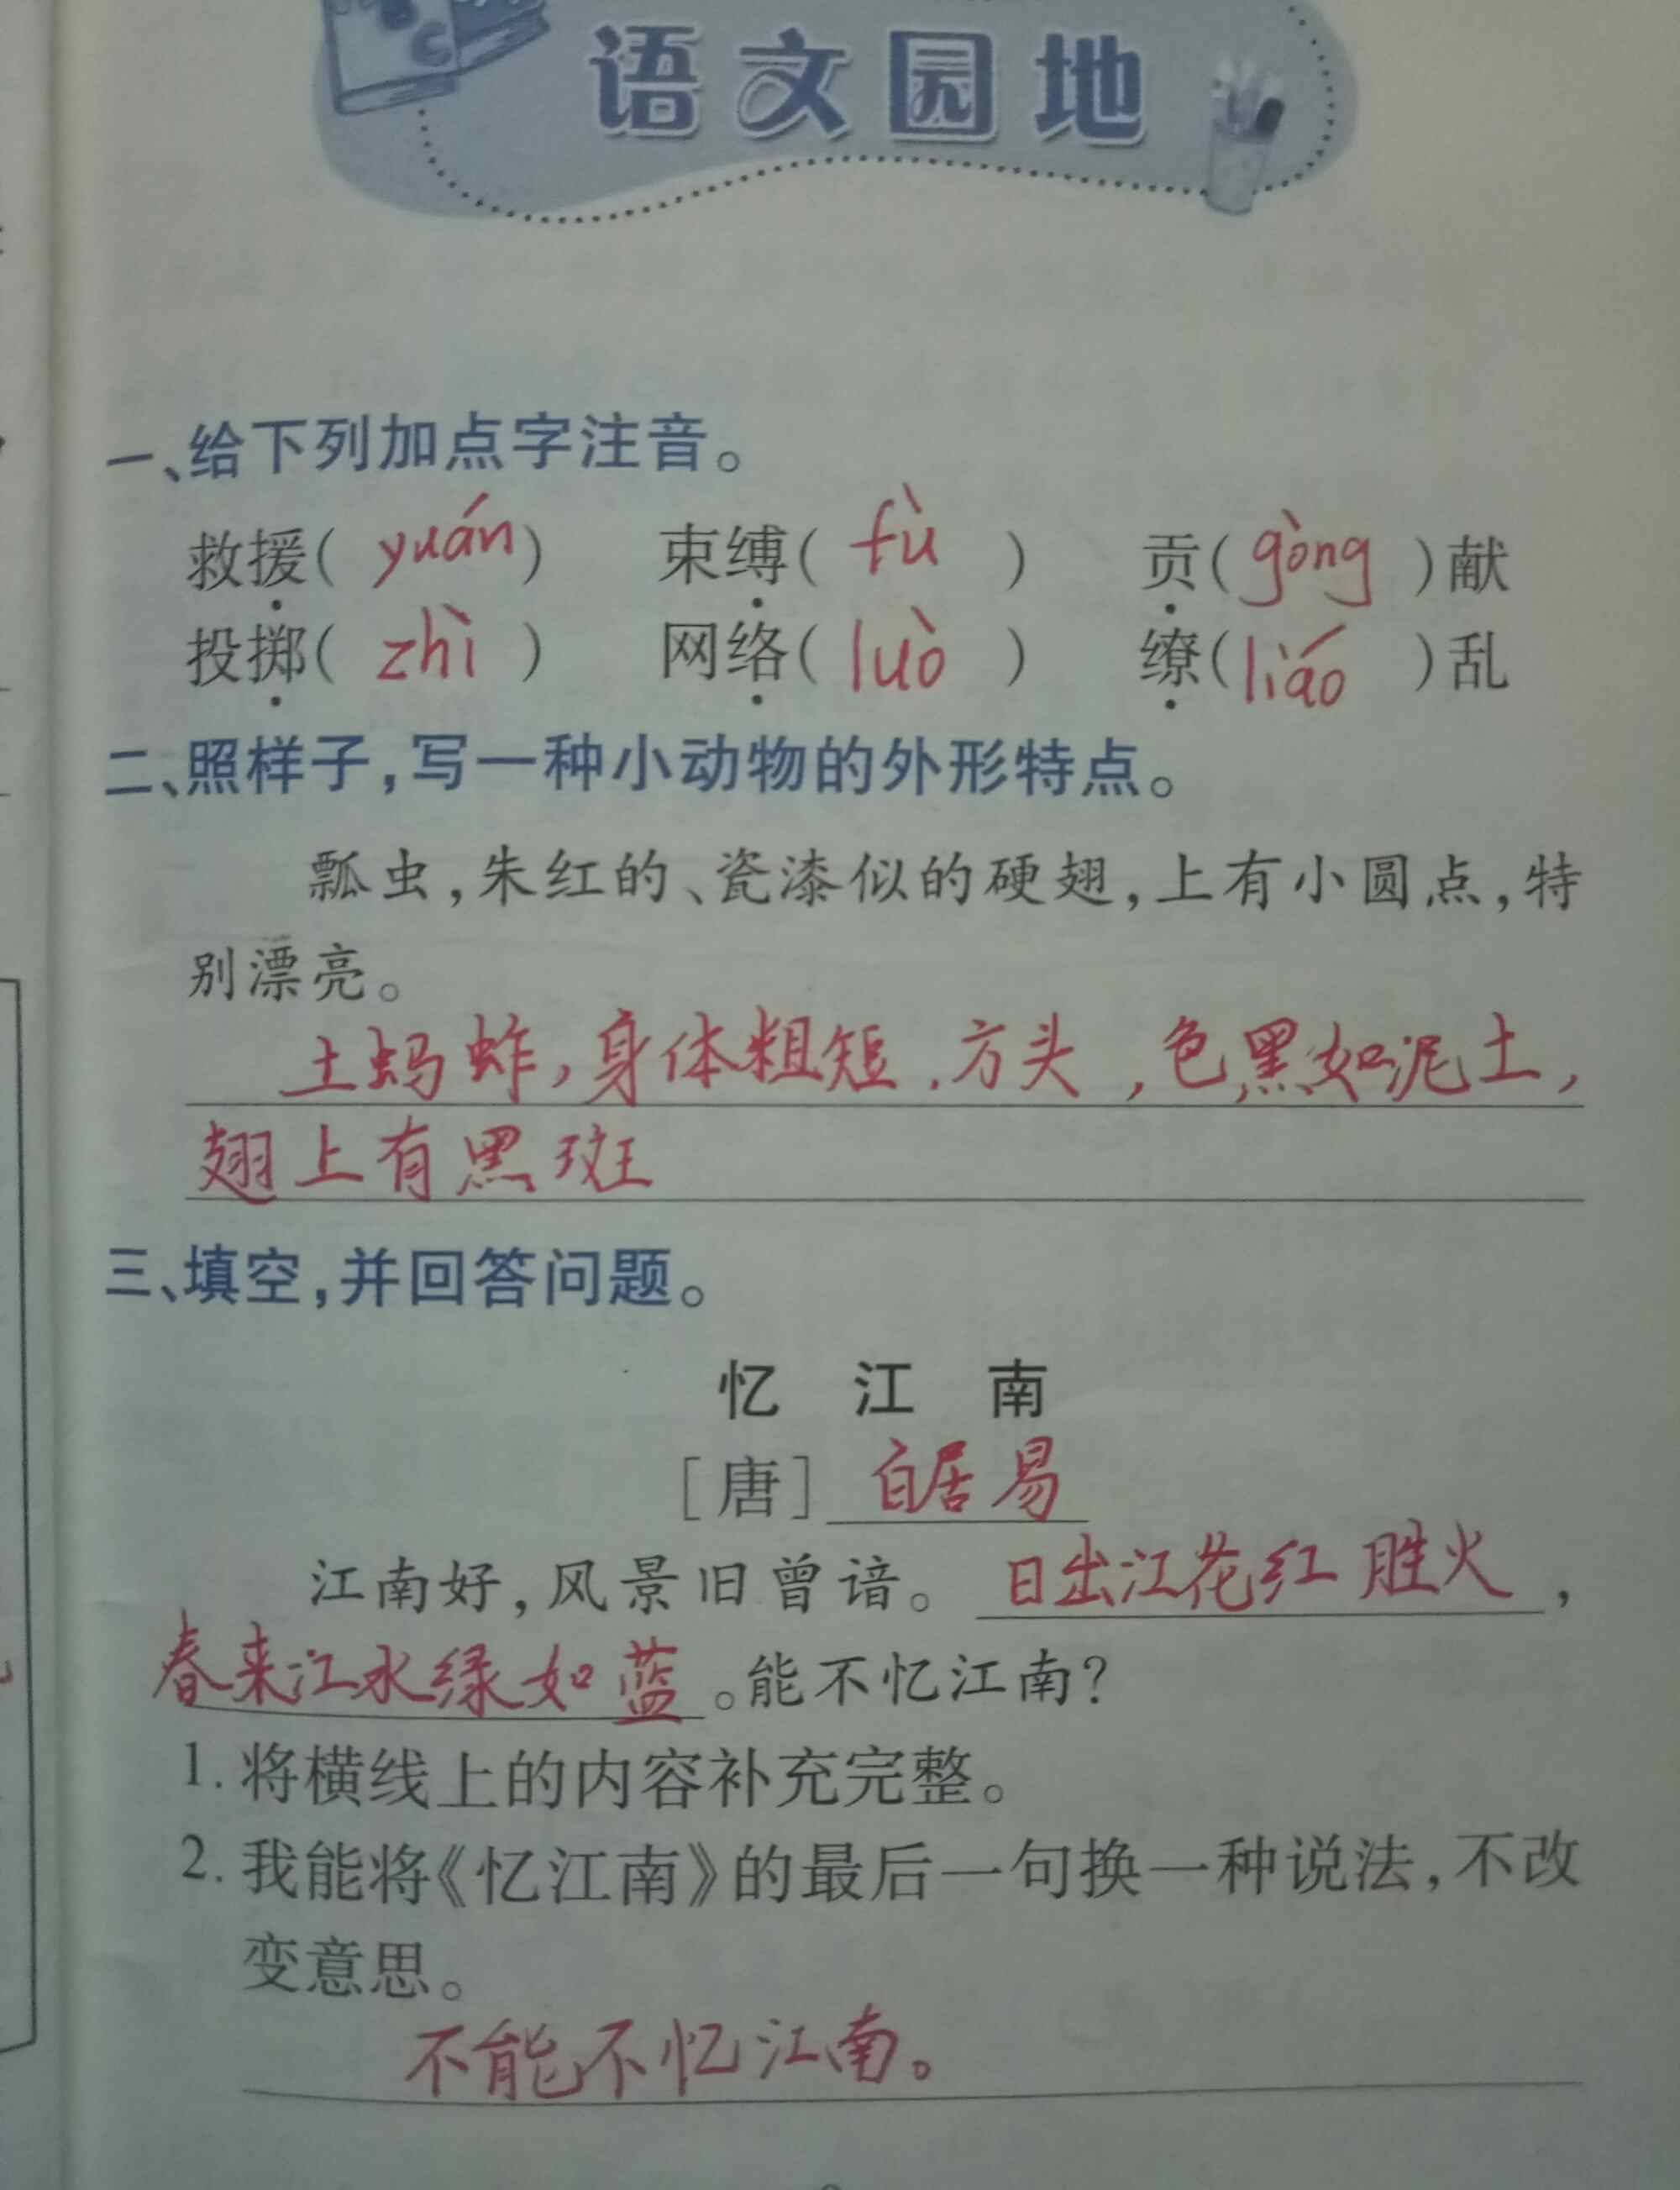 语文园地
一、给下列加点字注音。
救援( yuán ) 束缚( fù ) 贡( gòng )献
投掷( zhì ) 网络( luò ) 缭( liáo )乱
二、照样子,写一种小动物的外形特点。
瓢虫,朱红的、瓷漆似的硬翅,上有小圆点,特
别漂亮。
土蚂蚱,身体粗短,方头,色黑如泥土,
翅上有黑斑
三、填空,并回答问题。
忆江南
[唐] 白居易
江南好,风景旧曾谙。日出江花红胜火,
春来江水绿如蓝。能不忆江南?
1. 将横线上的内容补充完整。
2. 我能将《忆江南》的最后一句换一种说法,不改
变意思。
不能不忆江南。